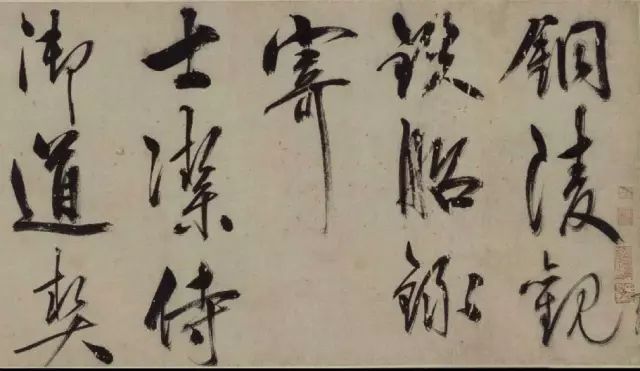 銅陵觀
鐵船錄
寄
士潔侍
御道契